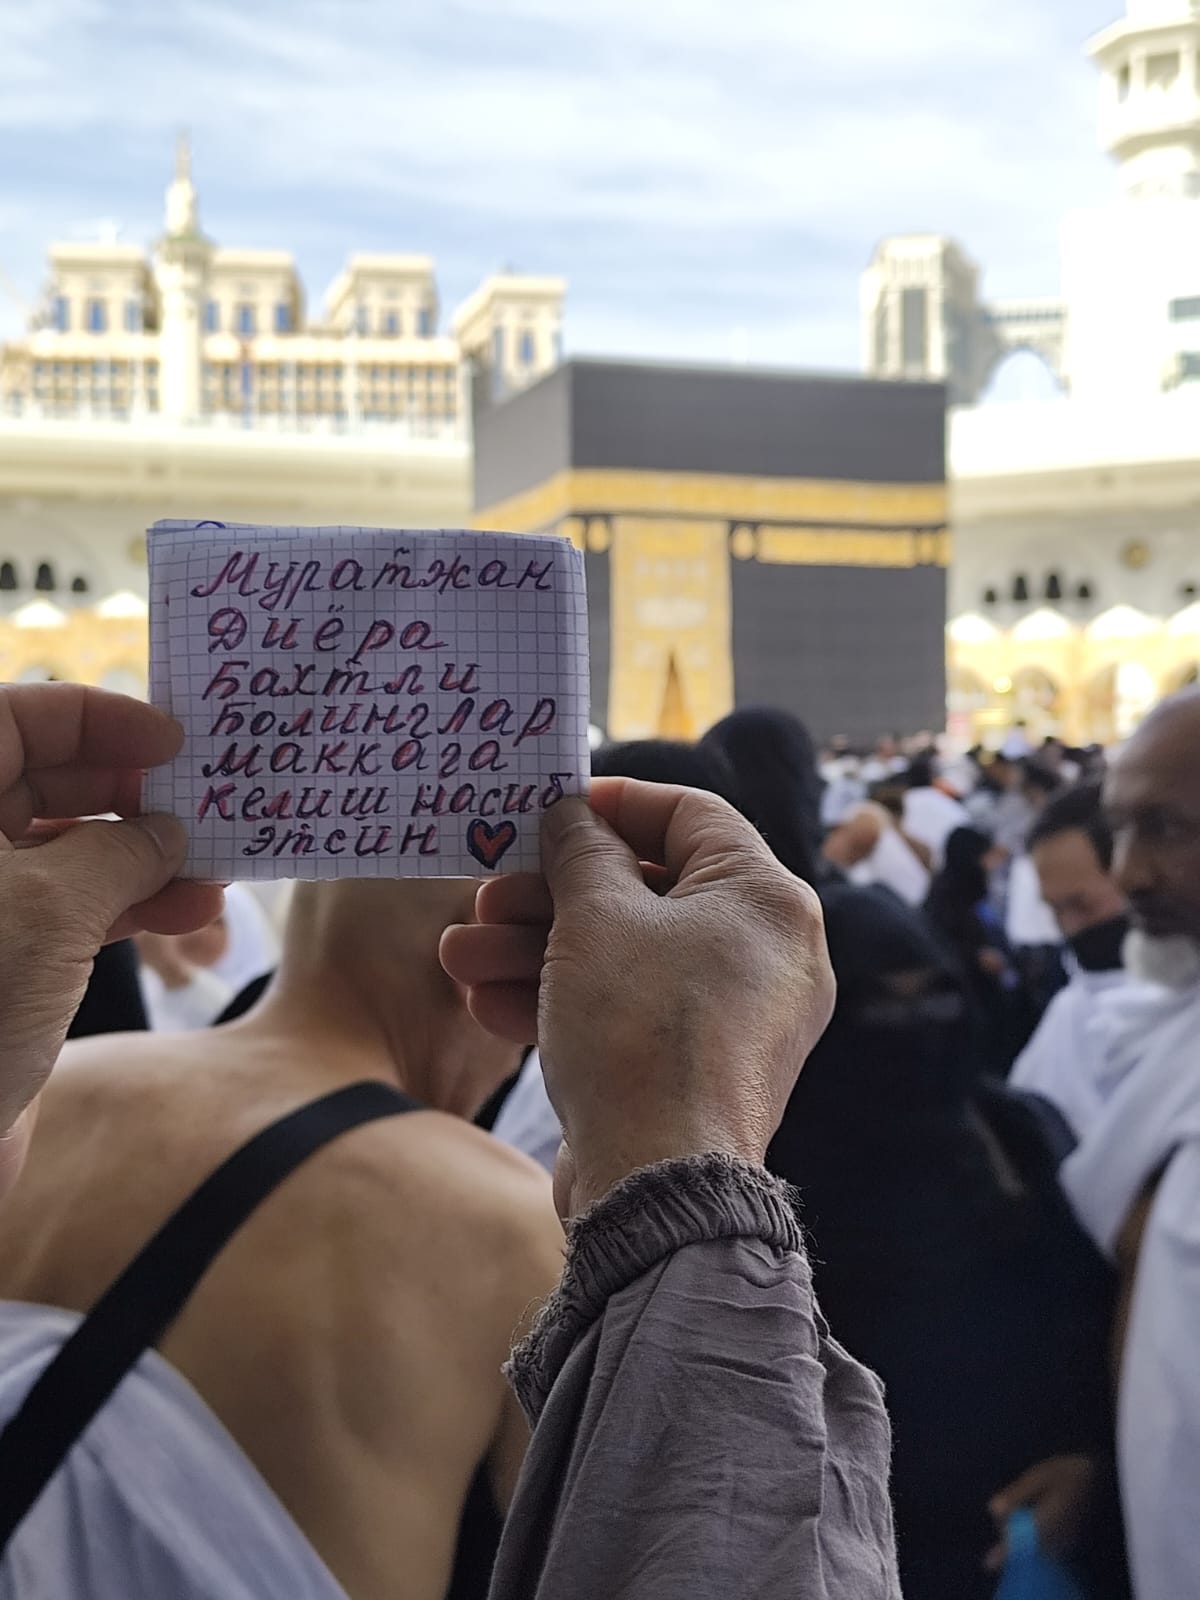 Муратжан
Диёра
Бахтли
Болинглар
маккага
келиш насиб
этсин